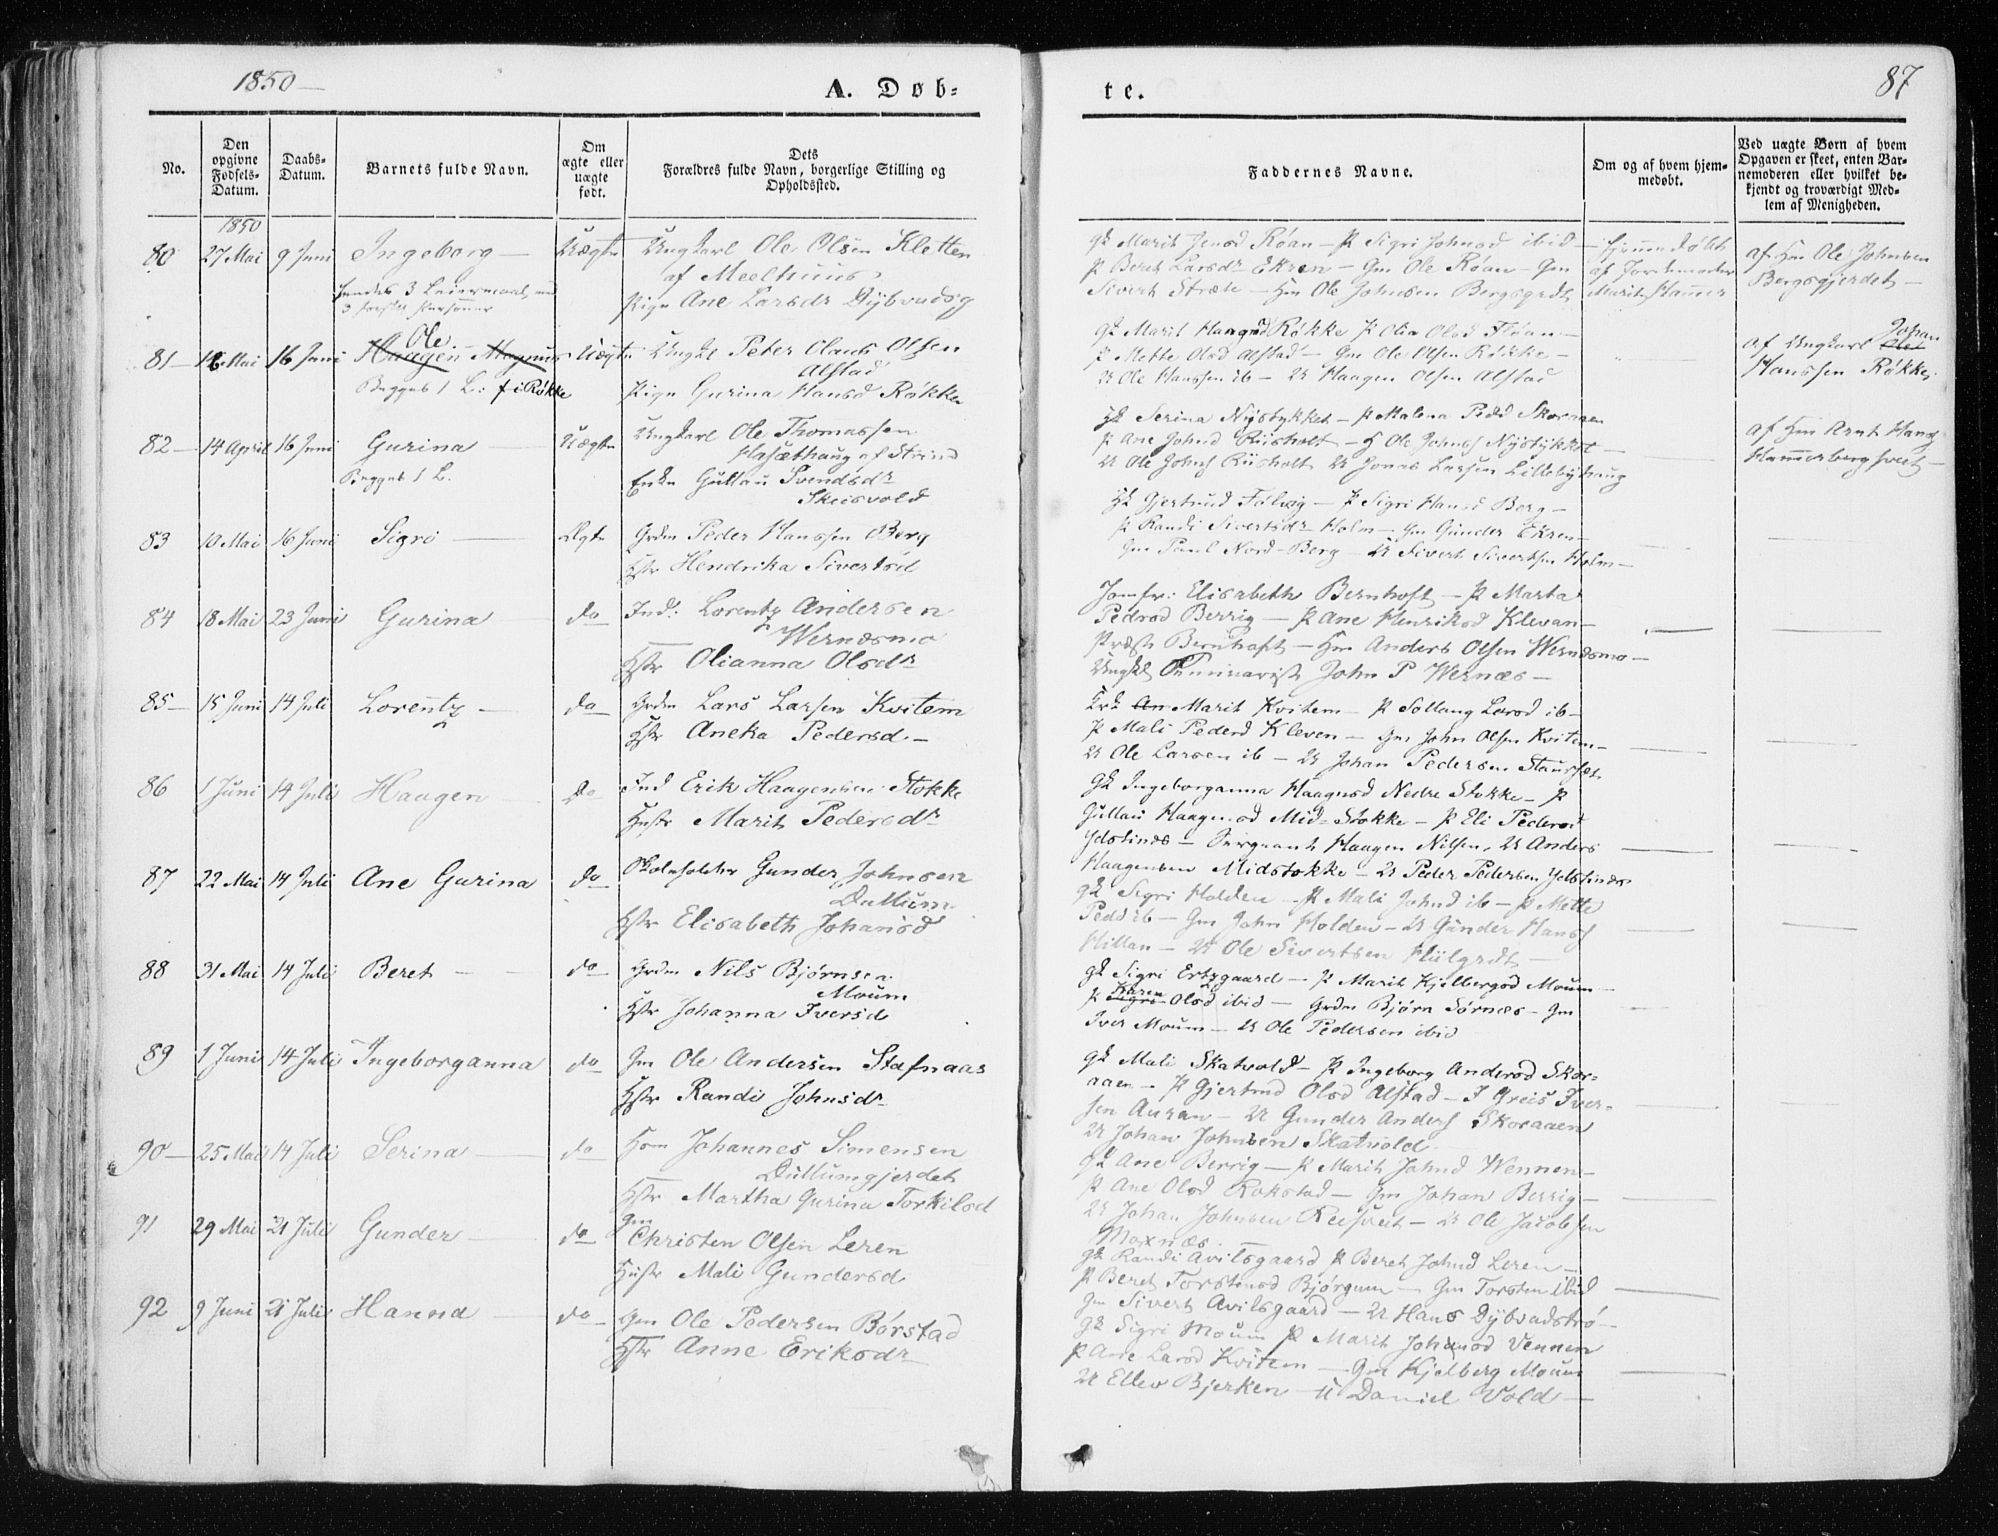 1850 —
A. Døb-
te.
87
No.
Den opgivne Fødsels-Datum.
Daabs-Datum.
Barnets fulde Navn.
Om ægte eller uægte født.
Dets Forældres fulde Navn, borgerlige Stilling og Opholdssted.
Faddernes Navne.
Om og af hvem hjem-medøbt.
Ved uægte Børn af hvem
Opgaven er skeet, enten Bar-
nemoderen eller hvilket be-
kjendt og troværdigt Med-
lem af Menigheden.
1850
80 27 Mai 9 Juni Ingeborg — Uægte Ungkarl Ole Olsen Kletten
af Meelhuus
Pige Ane Larsdr Dybvadsg
Gk Marit Jensd Røan — P Sigri Johnsd ibid —
P Beret Larsdr Ekren — Gm Ole Røan — Gm
Sivert Stræte — Hm Ole Johnsen Bergsgrdt
Hjemmedøbt
af Jordemoder
Marit Hammer
af Hm Ole Johnsen
Bergsgjerdet —
81 — Mai 16 Juni Haagen Magnus Ole Uægte Ungkl Peter Olaus Olsen
Alstad
Begges 1 L: f i Røkke
Pige Gurina Hansd Røkke
Gk Marit Haagnsd Røkke P Olia Olsd Fløan —
P Mette Olsd Alstad — Gm Ole Olsen Røkke —
U Ole Hanssen ib — U Haagen Olsen Alstad
af Ungkarl Johan
Hanssen Røkke
82 — 14 April 16 Juni Gurina — Uægte Ungkarl Ole Thomassen
af Strind
Begges 1 L.
Enke Gullau Svendsdr
Skeisvold
Serina Nystykket — P Malena Pedd Skoraaen
P Ane Johnd Riisholt — H Ole Johns Nystykket —
U Ole Johns Riisholt U Jonas Larsen Lillebythaug
af Hm Arnt Hans
Hammerberg
83 10 Mai 16 Juni Sigri — Ægte Grdm Peder Hanssen Berg
Hstr Hendrika Sivertsd
Gk Gjertrud — P Sigri Hansd Berg —
P Randi Sivertsdr Holm — Gm Gunder Ekren —
Gm Paul Nord-Berg — U Sivert Sivertsen Holm —
84 18 Mai 23 Juni Gurina — do Ind: Lorentz Andersen
Wernæsmo
Hstr Olianna Olsdr
Jomfr: Elisabeth Bernhoft — P Marta
Pedrsd Berrig — P Ane Henriksd Klevan —
Præst Bernhoft — Hm Anders Olsen Wernæsmo —
Ungkl Seminarist John P Wernæs —
85 — 15 Juni 14 Juli Lorentz — do Grdm Lars Larsen Kvitem
Hstr Aneka Pedersd —
An Marit Kvitem — P Sollaug Larsd ib —
P Mali Pedersd Kleven — Gm John Olsen Kvitem —
U Ole Larsen ib — U Johan Pedersen
86 1 Juni 14 Juli Haagen do Ind Erik Haagensen Stokke
Hustr Marit Pedersdr
Gk Ingeborganna Haagnsd Nedre Stokke — P
Gullau Haagensd Mid-Stokke — P Eli Pedersd
Ydstines — Sergeant Haagen Nilsen. U Anders
Haagensen Midstokke — U Peder Pedersen Ydstines
87 22 Mai 14 Juli Ane Gurina do Skoleholder Gunder Johnsen
Dullum
Hstr Elisabeth Johansd
gk Sigri Holden — P Mali Johnd ib — P Mette
Pedd ib — Gm John Holden — U Gunder Hans
— U Ole Sivertsen
88 31 Mai 14 Juli Beret — do Grdm Nils Bjørnsen
Moum
Hstr Johanna Iversd
gk Sigri Ertzgaard — P Marit Kjelbergsd Moum —
P Karen Sigri Olsd ibid — Grdm Bjørn Sørnæs — Gm
Iver Moum — U Ole Pedersen ibid
89 1 Juni 14 Juli Ingeborganna do Gm Ole Andersen Stafnaas
Hstr Randi Johnsdr
gk Mali Skatvold — P Ingeborg Andersd Skor-
aaen — P Gjertrud Olsd Alstad — Iver-
sen Auran — U Gunder Anders Skoraaen
U Johan Johnsen Skatvold
90 — 25 Mai 14 Juli Serina — do Hm Johannes Simensen
Dullumgjerdet
Hstr Martha Gurina Torkilsd
gk Ane Berrig — P Marit Johnd Wennen —
P Ane Olsd Rokstad — Gm Johan Berrig —
U Johan Johnsen — U Ole Jacobsen
Moxnæs.
91 29 Mai 21 Juli Gunder — do Gm
Christen Olsen Leren
Hustr Mali Gundersd
gk Randi Avilsgaard P Beret Johnd Leren —
P Beret Torstensd Bjørgum — Gm Torsten ibid
Gm Sivert Avilsgaard — U Hans Dybvadstrø —
92 9 Juni 21 Juli Hanna — do Gm Ole Pedersen Børstad
Hstr Anne Eriksdr
gk Sigri Moum P Marit Johansd Vennen
P Ane Larsd Kvitem — Gm Kjelberg Moum
U Ellev Bjerken — U Daniel Vold —